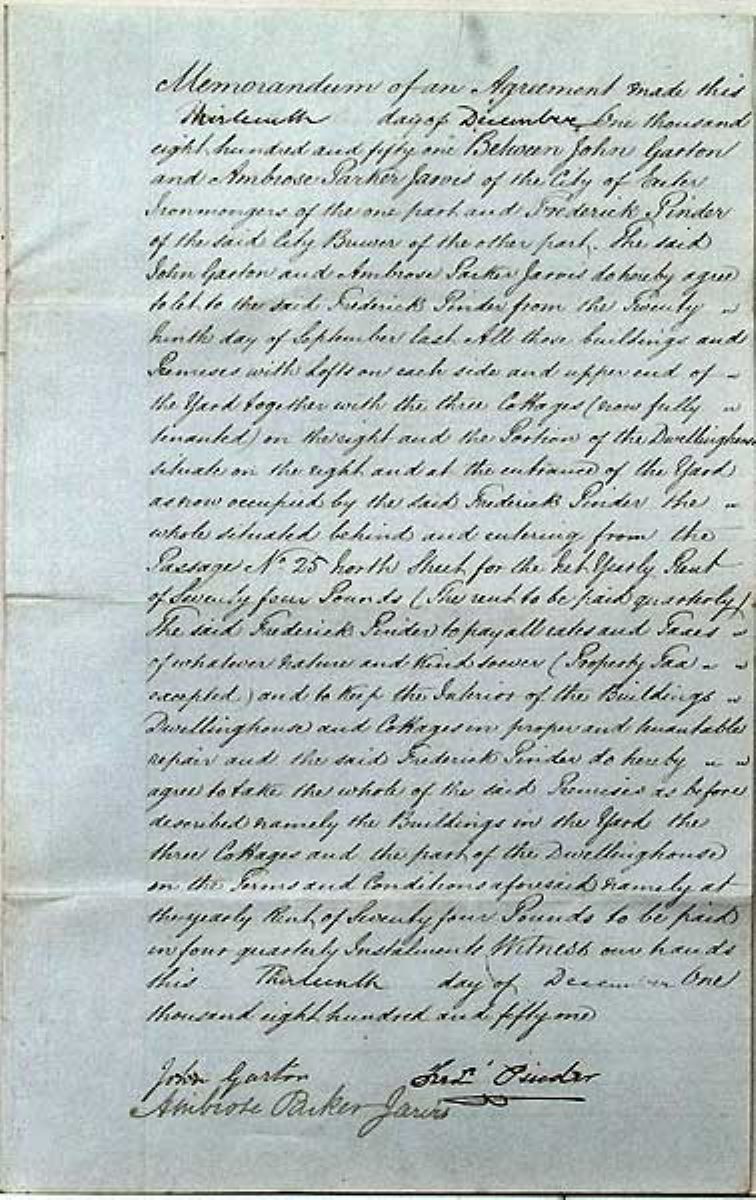 Memorandum of an Agreement made this
Thirteenth day of December One thousand
eight hundred and fifty one Between John Garton
and Ambrose Parker Jarvis of the City of Exeter
Ironmongers of the one part and Frederick Pinder
of the said City Brewer of the other part. The said
John Garton and Ambrose Parker Jarvis do hereby agree
to let to the said Frederick Pinder from the Twenty
ninth day of September last All those buildings and
Premises with Lofts on each side and upper end of
the Yard together with the three Cottages (now fully
tenanted) on the right and the Portion of the Dwellinghouse
situate on the right and at the entrance of the Yard
as now occupied by the said Frederick Pinder the
whole situated behind and entering from the
Passage No 25 North Street for the Net Yearly Rent
of Seventy four Pounds (The rent to be paid quarterly)
The said Frederick Pinder to pay all rates and Taxes
of whatever nature and kind soever (Property Tax
excepted) and to keep the Interior of the Buildings
Dwellinghouse and Cottages in proper and tenantable
repair and the said Frederick Pinder do hereby
agree to take the whole of the said Premises as before
described namely the Buildings in the Yard the
three Cottages and the part of the Dwellinghouse
on the Terms and Conditions aforesaid namely at
the yearly Rent of Seventy four Pounds to be paid
in four quarterly Instalments Witness our hands
this Thirteenth day of December One
thousand eight hundred and fifty one
John Garton Fredk Pinder
Ambrose Parker Jarvis